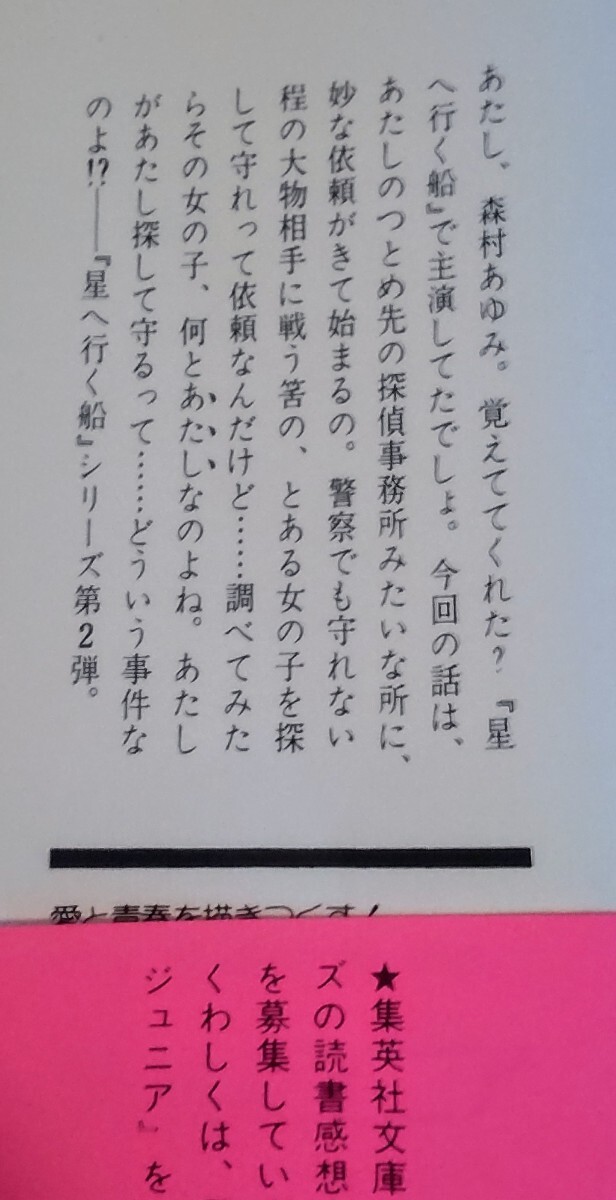 あたし、森村あゆみ。覚えててくれた? 『星
へ行く船』で主演してたでしょ。今回の話は、
あたしのつとめ先の探偵事務所みたいな所に、
妙な依頼がきて始まるの。警察でも守れない
程の大物相手に戦う筈の、とある女の子を探
して守れって依頼なんだけど……調べてみた
らその女の子、何とあたしなのよね。あたし
があたし探して守るって……どういう事件な
のよ!?――『星へ行く船』シリーズ第2弾。
愛と青春を描きつくす!
★集英社文庫
ズの読書感想
を募集してい
くわしくは、
ジュニア』を